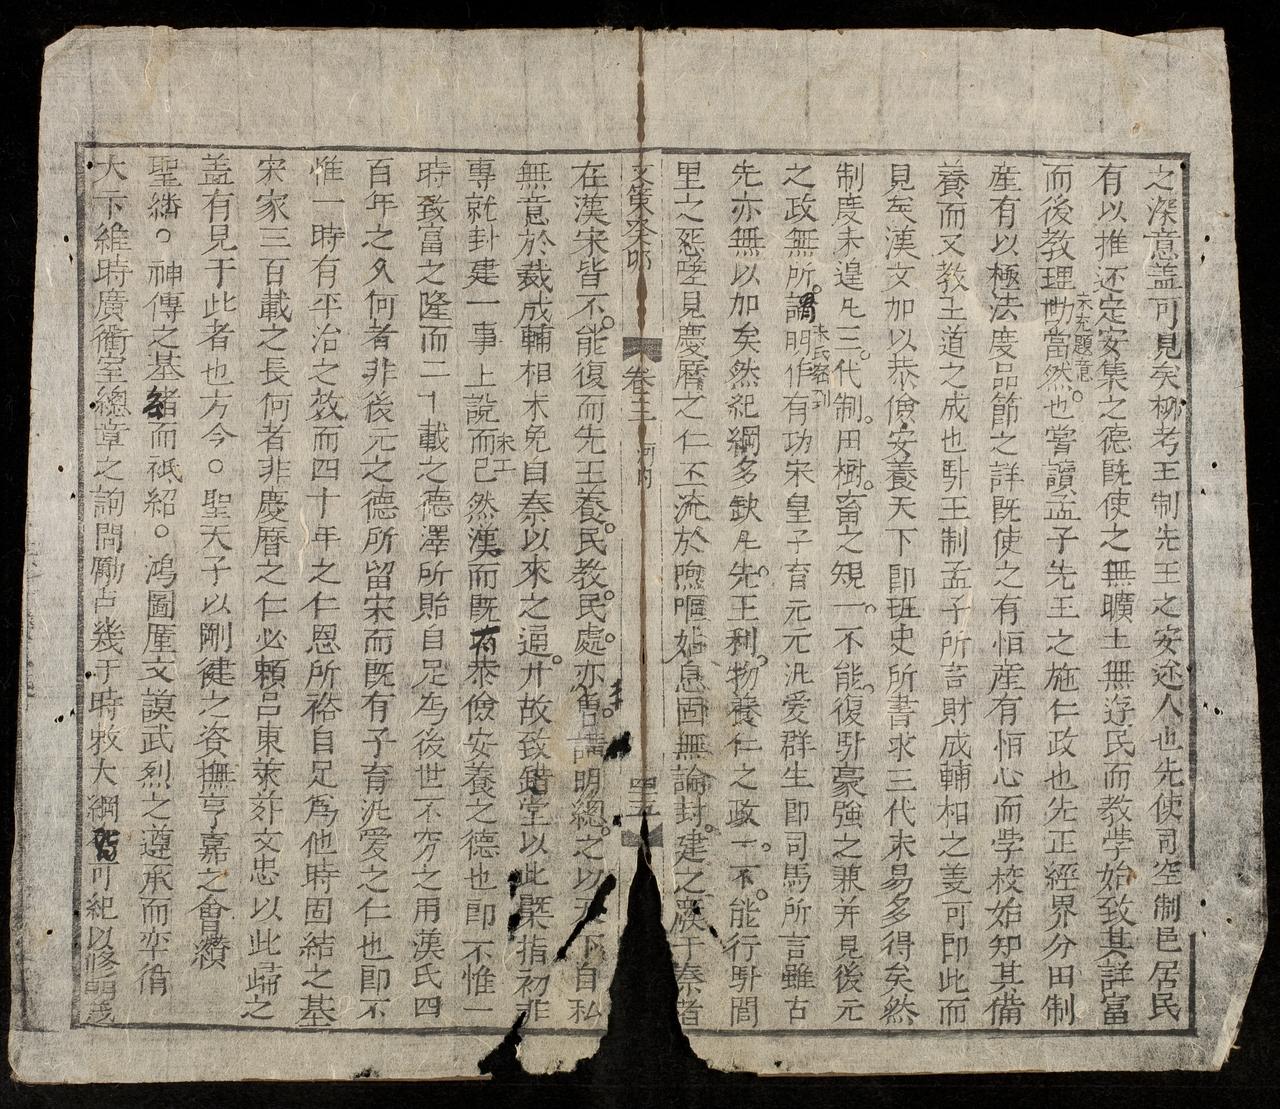 之深意盖可見矣柳考王制先王之安这人也先使司空制邑居民
有以推还定安集之德既使之無曠土無逰民而教学始致其詳富
而後教理勐當然也嘗讀孟子先王之施仁政也先正經界分田制
未充題意
産有以極法度品節之詳既使之有恒産有恒心而学校始知其備
養而又教王道之成也馯王制孟子所言財成輔相之姜可即此而
見矣漢文加以恭儉安養天下即班史所書求三代未易多得矣然
制度未遑凡三代制田樹畜之規一不能復馯豪強之兼并見後元
之政無所講明作有功宋皇子育元元汎爱群生即司馬所言雖古
先亦無以加矣然紀綱多缺凡先王利物養仁之政一不能行馯閭
里之愁見慶曆之仁不流於喣嘔姑息固無論封建之廢于秦者
文策 卷三 河内 四五
在漢宋皆不能復而先王養民教民處亦曾講明總之以天下自私
無意於裁成輔相未免自秦以來之通升故致錯堂以此槩指初非
專就封建一事上說而已然漢而既有恭儉安養之德也即不惟一
時致富之隆而二十載之德澤所貽自足為後世不穷之用漢氏四
百年之久何者非後元之德所留宋而既有子育汎爱之仁也即不
惟一時有平治之效而四十年之仁恩所裕自足為他時固結之基
宋家三百載之長何者非慶曆之仁必頼吕東萊許文忠以此歸之
盖有見于此者也方今○聖天子以剛健之資撫亨嘉之會纘
聖繙○神傳之基緒而祇紹○鴻圖厘文謨武烈之遵承而率循
大下維時廣衢室總章之詢問勵占幾于時敕大綱可紀以修明